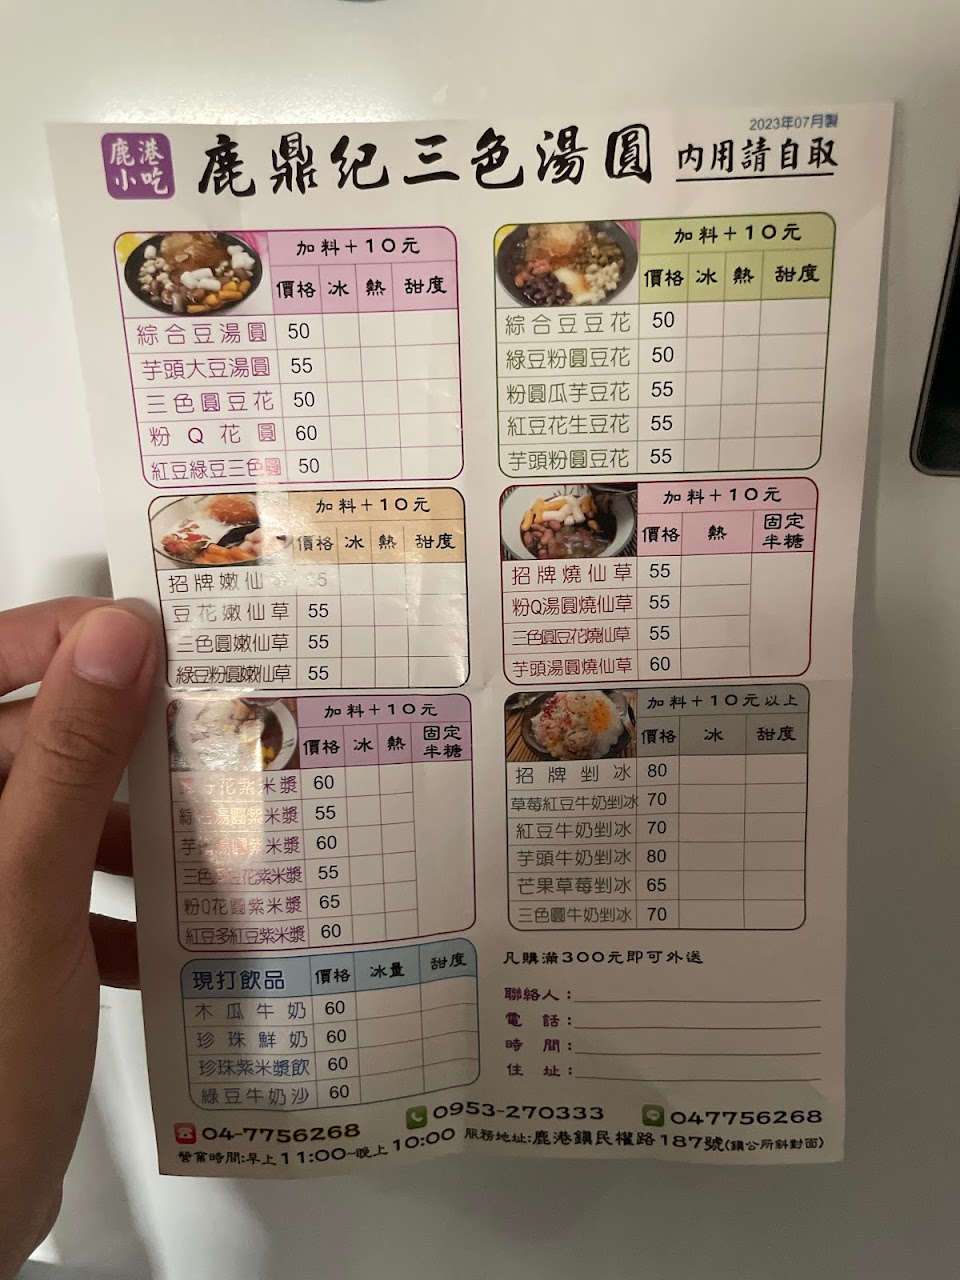 2023年07月製
鹿港
小吃
鹿鼎紀三色湯圓
內用請自取
加料+10元
價格 冰 熱 甜度
綜合豆湯圓 50
芋頭大豆湯圓 55
三色圓豆花 50
粉Q花圓 60
紅豆綠豆三色圓 50
加料+10元
價格 冰 熱 甜度
綜合豆豆花 50
綠豆粉圓豆花 50
粉圓瓜芋豆花 55
紅豆花生豆花 55
芋頭粉圓豆花 55
加料+10元
價格 冰 熱 甜度
招牌嫩仙
豆花嫩仙草 55
三色圓嫩仙草 55
綠豆粉圓嫩仙草 55
加料+10元
價格 熱 固定半糖
招牌燒仙草 55
粉Q湯圓燒仙草 55
三色圓豆花燒仙草 55
芋頭湯圓燒仙草 60
加料+10元
價格 冰 熱 固定半糖
花紫米漿 60
湯圓紫米漿 55
芋 米漿 60
三色 花紫米漿 55
粉Q花圓紫米漿 65
紅豆多紅豆紫米漿 60
加料+10元以上
價格 冰 甜度
招牌剉冰 80
草莓紅豆牛奶剉冰 70
紅豆牛奶剉冰 70
芋頭牛奶剉冰 80
芒果草莓剉冰 65
三色圓牛奶剉冰 70
現打飲品 價格 冰量 甜度
木瓜牛奶 60
珍珠鮮奶 60
珍珠紫米漿飲 60
綠豆牛奶沙 60
凡購滿300元即可外送
聯絡人:
電話:
時間:
住址:
04-7756268 0953-270333 047756268
營業時間:早上11:00~晚上10:00 服務地址:鹿港鎮民權路187號(鎮公所斜對面)